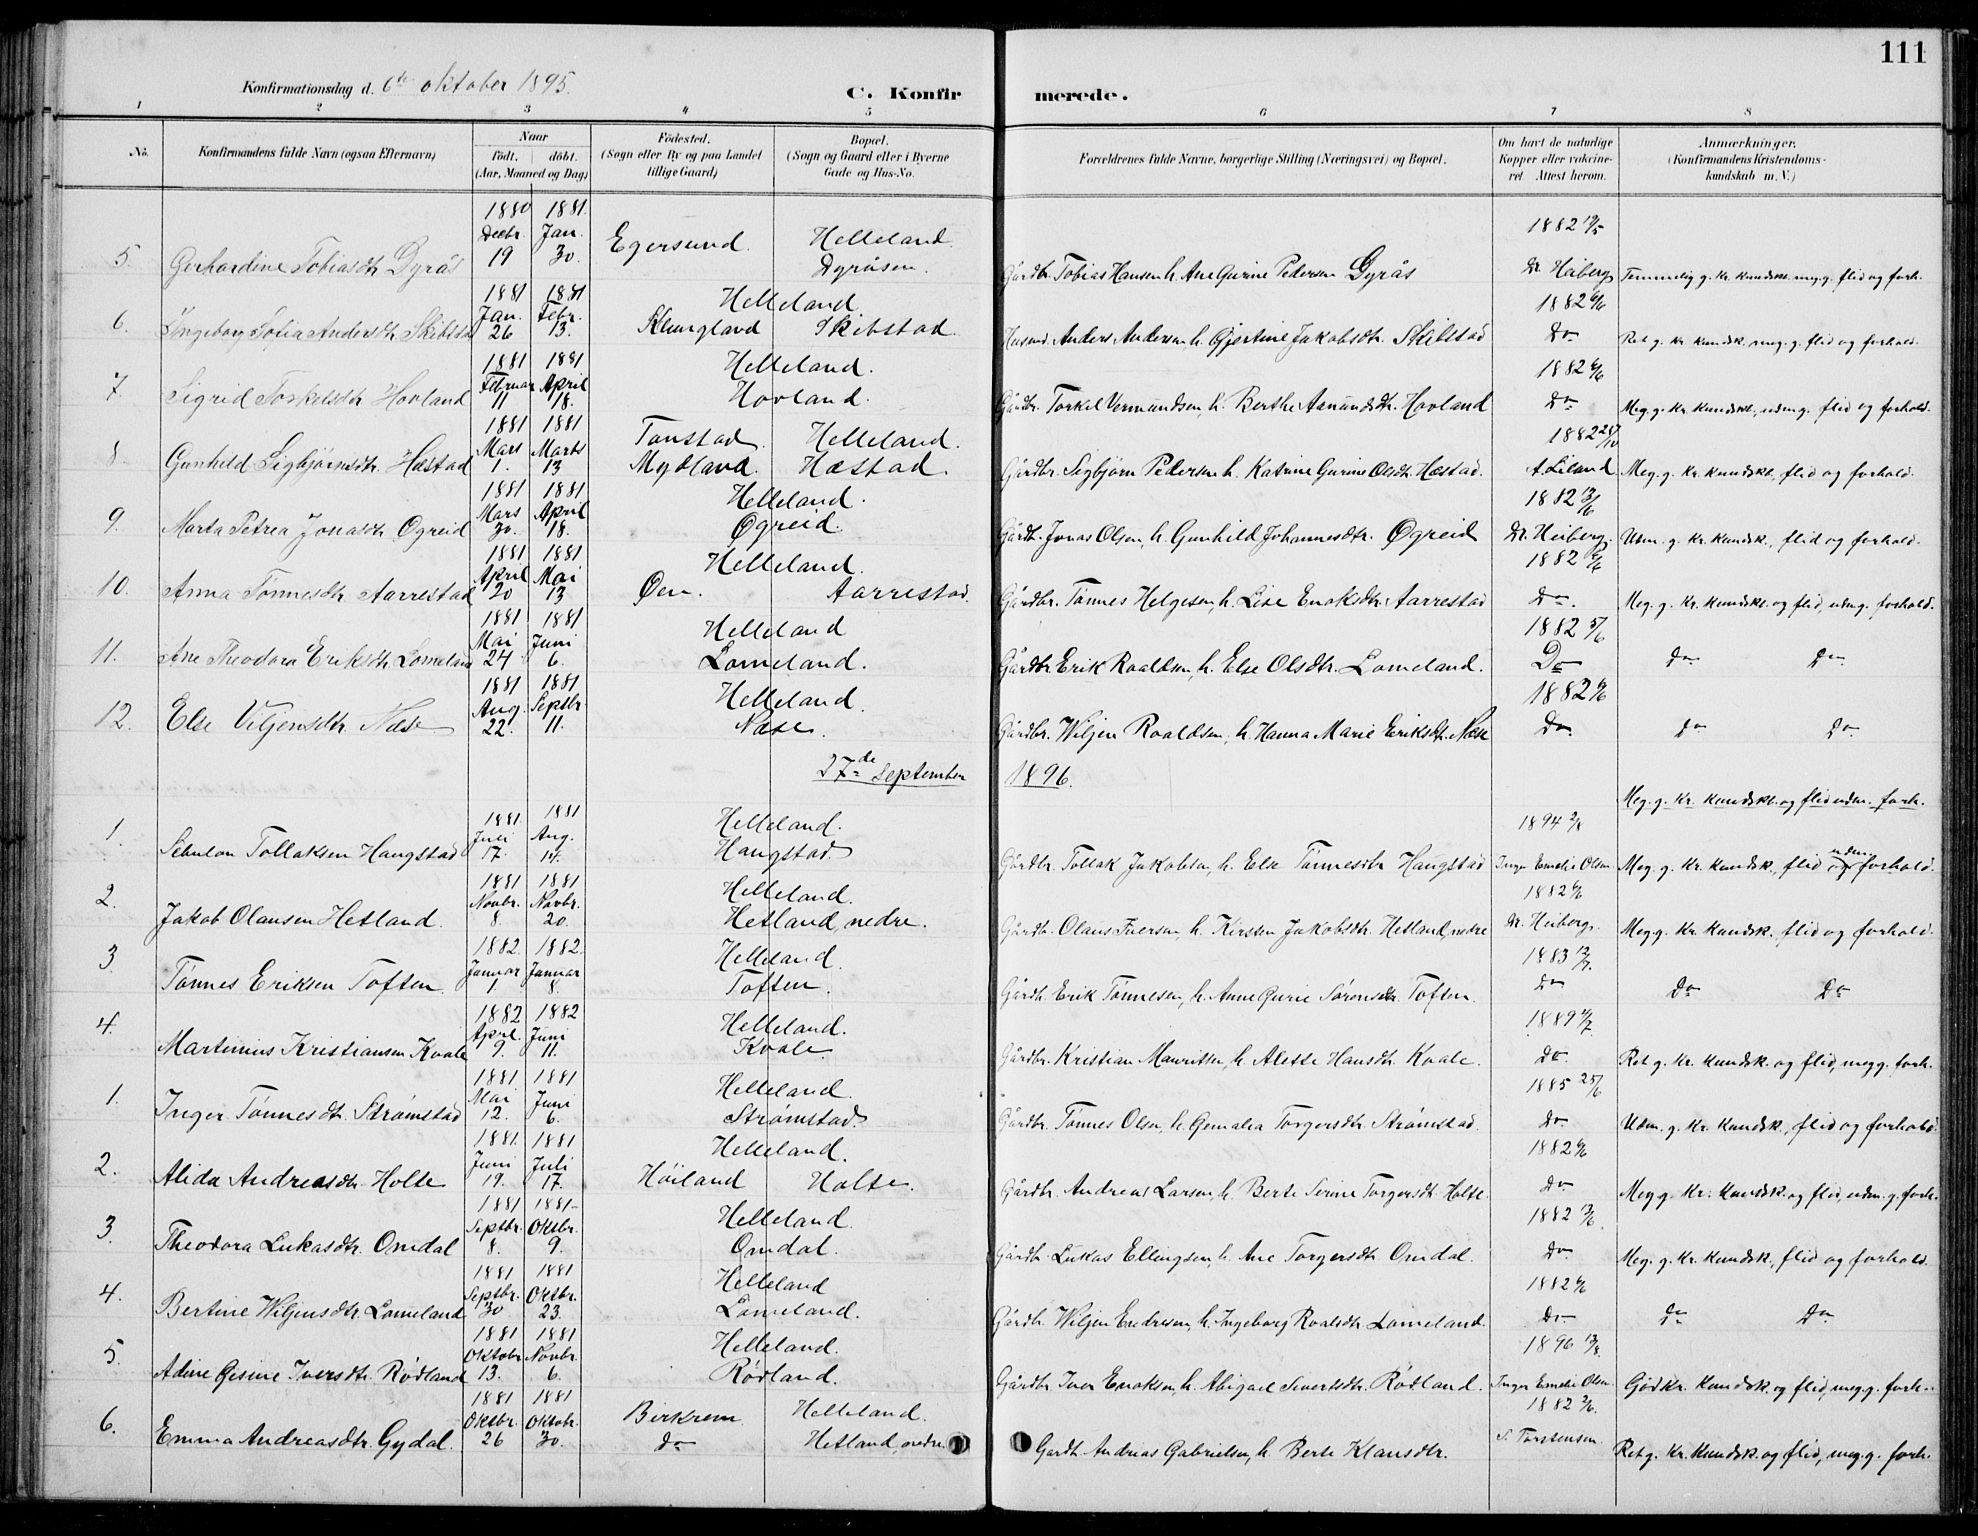 111
Konfirmationsdag d. 6te oktober 1895.
C. Konfirmerede.
1 2 3 4 5 6 7 8
No. Konfirmandens fulde Navn (ogsaa Efternavn) Naar født. døbt. (Aar, Maaned og Dag) Födested. (Sogn eller By og paa Landet tillige Gaard) Bopæl. (Sogn og Gaard eller i Byerne Gade og Hus-No. Forældrenes fulde Navne, borgerlige Stilling (Næringsvei) og Bopæl. Om havt de naturlige Kopper eller vakcineret Attest herom. Anmærkninger. (Konfirmandens Kristendomskundskab m. V.)
1880 1881. 1882 19/5
Decbr. Jan. Egersund. Helleland.
5. Gerhardine Tobiasdtr Dyrås 19 30. Dyråsen. Gårdbr. Tobias Hansen h. Ane Gurine Pedersen Dyrås Dr. Heiberg Temmelig g. kr. kundsk. meg. g. flid og forh.
1881 1881 Helleland 1882 6/6
Jan. Febr.
6. Ingeborg Sofia Andersdtr Skibstad 26 13. Klungland Skibstad. Husmd. Anders Andersen, h. Gjertine Jakobsdtr. Skibstad Do Ret g. kr. kundsk. meg. g. flid og forhold.
1881 1881 Helleland. 1882 6/6
Februar April
7. Sigrid Torkelsdtr Hovland 11 18. Hovland. Gårdbr. Torkel Vermundsen h. Berthe Aanundsdtr. Hovland Do Meg. g. kr. kundsk., udm. g. flid og forhold.
1881 1881 Tonstad Helleland. 1882 28/10
Mars Marts
8. Gunhild Sigbjørnsdtr. Hæstad 1. 13 Mydland. Hæstad. Gårdbr. Sigbjørn Pedersen h. Katrine Gurine Olsdtr. Hæstad. A. Liland Meg. g. kr. kundsk., flid og forhold.
1881 1881 Helleland. 1882 13/6
Mars April
9. Marta Petrea Jonasdtr Øgreid 30. 18. Øgreid. Gårdbr. Jonas Olsen, h. Gunhild Johannesdtr. Øgreid Dr. Heiberg. Udm. g. kr. kundsk., flid og forhold.
1881 1881 Helleland. 1882 6/6
April Mai
10. Anna Tønnesdtr Aarrestad 20 13 Øen. Aarrestad. Gårdbr. Tønnes Helgesen, h. Lise Enoksdtr. Aarrestad Do. Meg. g. kr. kundsk. og flid, udm g. forhold.
1881 1881 Helleland 1882 5/6
Mai Juni
11. Ane Theodora Eriksdtr Lomeland 24 6. Lomeland. Gårdbr. Erik Roaldsen, h. Else Olsdtr. Lomeland. Do Do Do
1881 1881 Helleland. 1882 6/6
Aug. Septbr.
12. Else Viljensdtr Næse 22. 11. Næse. Gårdbr. Wiljen Roaldsen, h. Hanna Marie Eriksdtr. Næse Do Do Do.
27de September 1896.
Meg. g. kr. kundsk. og flid udm. forh.
1881 1881 Helleland. 1894 2/8
Juli Aug.
1. Sebulon Tollaksen Haugstad 17. 14. Haugstad. Gårdbr. Tollak Jakobsen, h. Else Tønnesdtr Haugstad Inger Emelie Olsen Meg. g. kr. kundsk., flid og udm. forhold.
1881 1881 Helleland. 1882 6/6
Novbr. Novbr.
2. Jakob Olausen Hetland. 8. 20. Hetland, nedre. Gårdbr. Olaus Iversen, h. Kirsten Jakobsdtr Hetland, nedre Dr. Heiberg. Meg g. kr. kundsk. flid og forhold.
1882 1882. Helleland. 1883 12/7.
Januar Januar
3. Tønnes Eriksen Toften. 1 8. Toften. Gårdbr. Erik Tønnesen, h. Anne Gurie Sørensdtr. Toften. Do Do Do
1882 1882 Helleland. 1889 4/7.
April. Juni
4. Martinius Kristiansen Kvale 9. 11. Kvale. Gårdbr. Kristian Mauritsen, h. Alette Hansdtr. Kvale. Do. Ret g. kr. kundsk. og flid, meg g. forh.
1881 1881 Helleland. 1885 25/6
Mai Juni
1. Inger Tønnesdtr. Strømstad 12. 6. Strømstad. Gårdbr. Tønnes Olsen, h. Gunalia Torgersdtr. Strømstad. Do Udm. g. kr. kundsk., flid og forhold.
1881. 1881 Helleland. 1882 6/6
Juni Juli
2. Alida Andreasdtr. Holte 19. 17. Høiland Holte. Gårdbr. Andreas Larsen, h. Berte Serine Torgersdtr. Holte. Do Meg g. kr. kundsk. og flid, udm. g. forh.
1881 1881 Helleland. 1882 13/6.
Septbr. Oktbr.
3. Theodora Lukasdtr. Omdal 8. 9. Omdal. Gårdbr. Lukas Ellingsen, h. Ane Torgersdtr Omdal. Do Meg. g. kr. kundsk., flid og forhold.
1881 1881 Helleland 1882 6/6
Septbr. Oktbr.
4. Bertine Wiljensdtr. Lomeland 30 23. Lomeland. Gårdbr. Wiljen Endresen, h. Ingeborg Roalsdtr Lomeland. Do Do Do
1881 1881 Helleland. 1896 13/8.
Oktobr Novbr.
5. Adine Gesine Iversdtr. Rødland 13. 6. Rødland. Gårdbr. Iver Enoksen, h. Abigael Sivertsdtr. Rødland. Inger Emelie Olsen God kr. kundsk. og flid, meg. g. forh.
1881 1881 Birkrem. Helleland. 1882 2/6.
Oktbr. Oktobr.
6. Emma Andreasdtr. Gydal. 26 30. do Hetland, nedre Gardbr. Andreas Gabrielsen, h. Berte Klausdtr. S. Torstensen. Ret g. kr. kundsk. og flid, meg. g. forh.